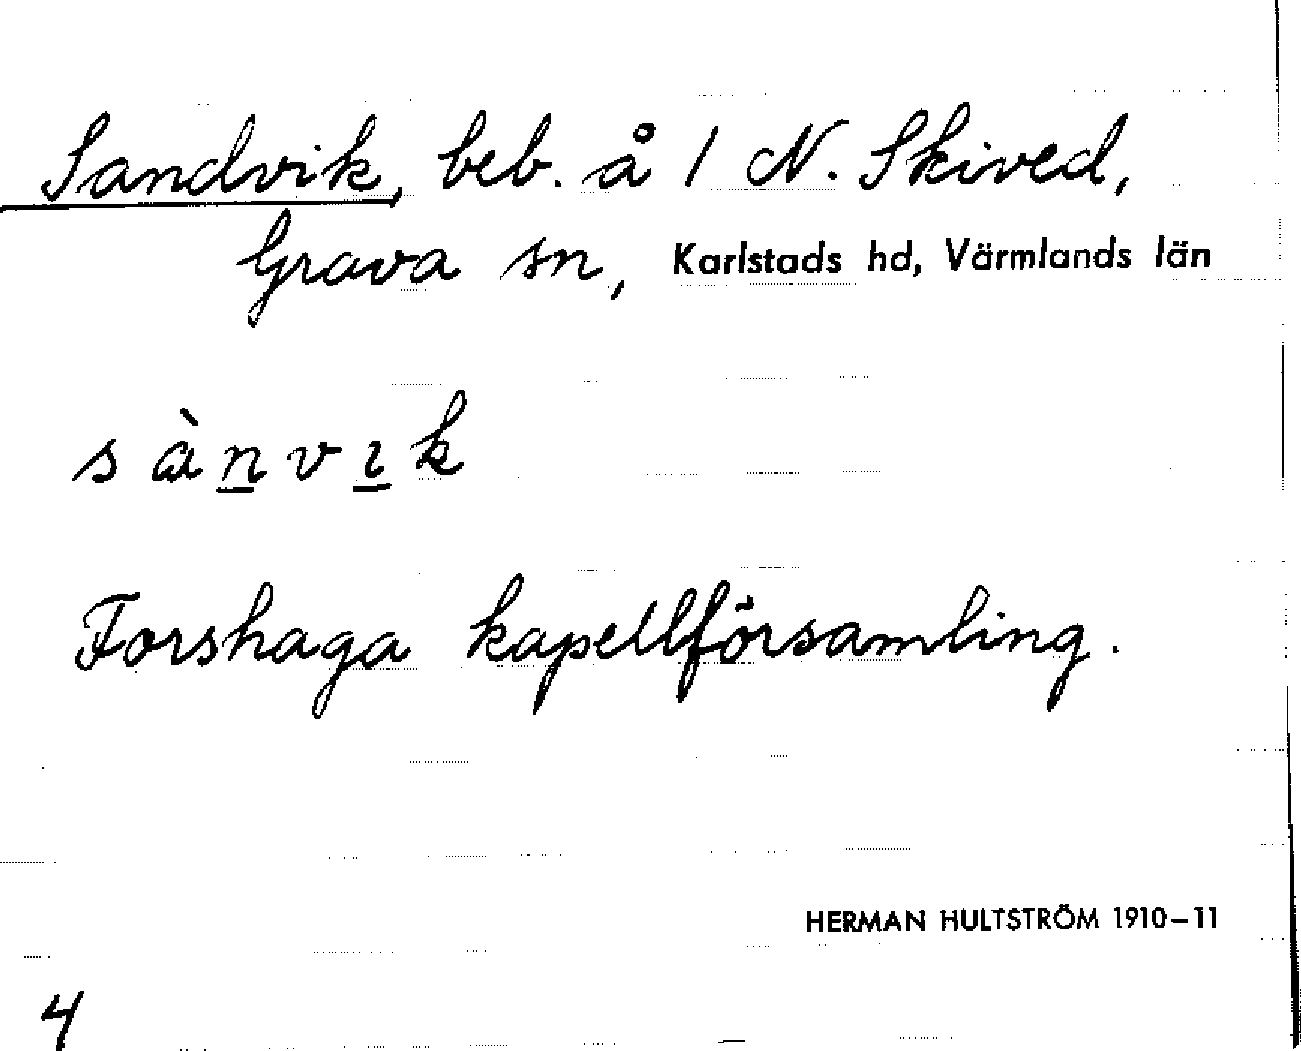 Sandvik, beb. å 1 N. Skived,
Grava sn, Karlstads hd, Värmlands län
sànvık
Forshaga kapellförsamling.
HERMAN HULTSTRÖM 1910–11
4